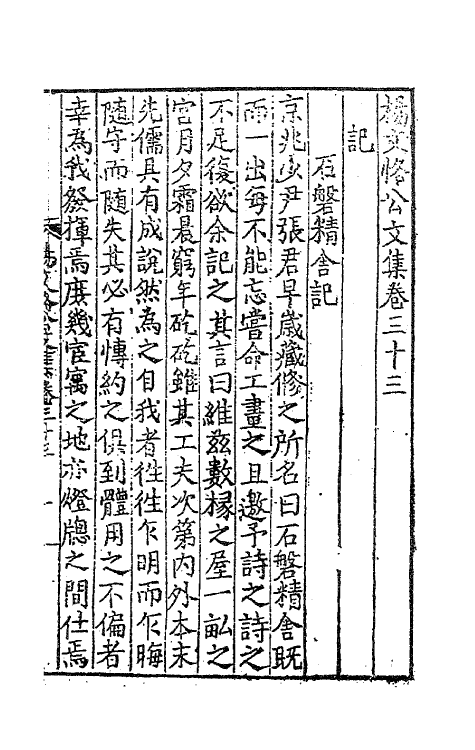 楊文恪公文集卷三十三
記
石磐精舍記
京兆少尹張君早歲藏修之所名曰石磐精舍既
而一出每不能忘嘗命工畫之且邀予詩之詩之
不足復欲余記之其言曰維玆數椽之屋一畝之
宮月夕霜晨窮年矻矻雖其工夫次第內外本末
先儒具有成說然為之自我者徃徃乍明而乍晦
隨守而隨失其必有愽約之俱到體用之不偏者
幸為我發揮焉庶幾宦寓之地亦燈牕之間仕焉